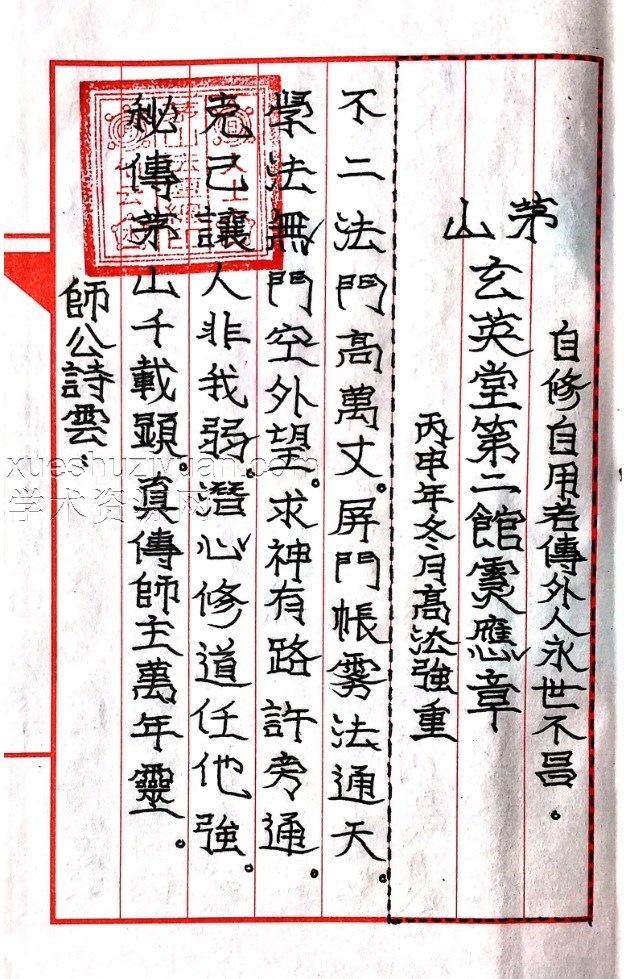 自修自用若傳外人永世不昌。
茅山
玄英堂第二館靈應章
丙申年冬月高法強重
不二法門高萬丈。屏門帳雾法通天。
學法無門空外望。求神有路許旁通。
克己讓人非我弱。潛心修道任他強。
秘傳茅山千載顕。真傳師主萬年靈。
師公詩雲、
xueshuziyuan.com
学术资源网